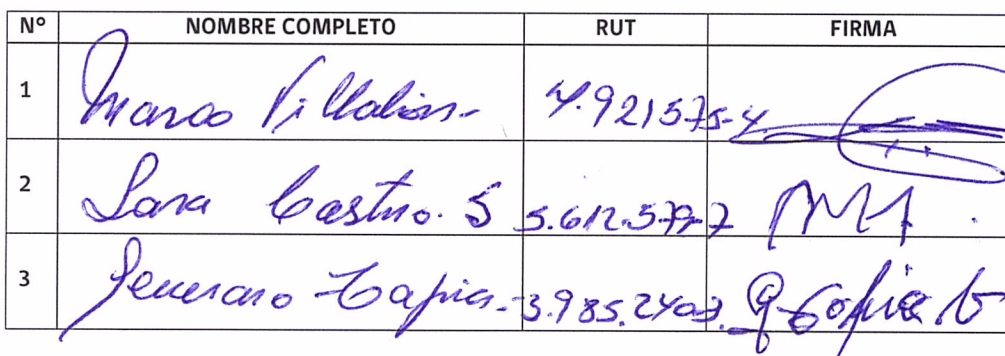 N° NOMBRE COMPLETO RUT FIRMA
1 Marco Villalion 4.921575-4
2 Sara Castro. S 5.612.579-7
3 Genaro Tapia 3.985.240-3